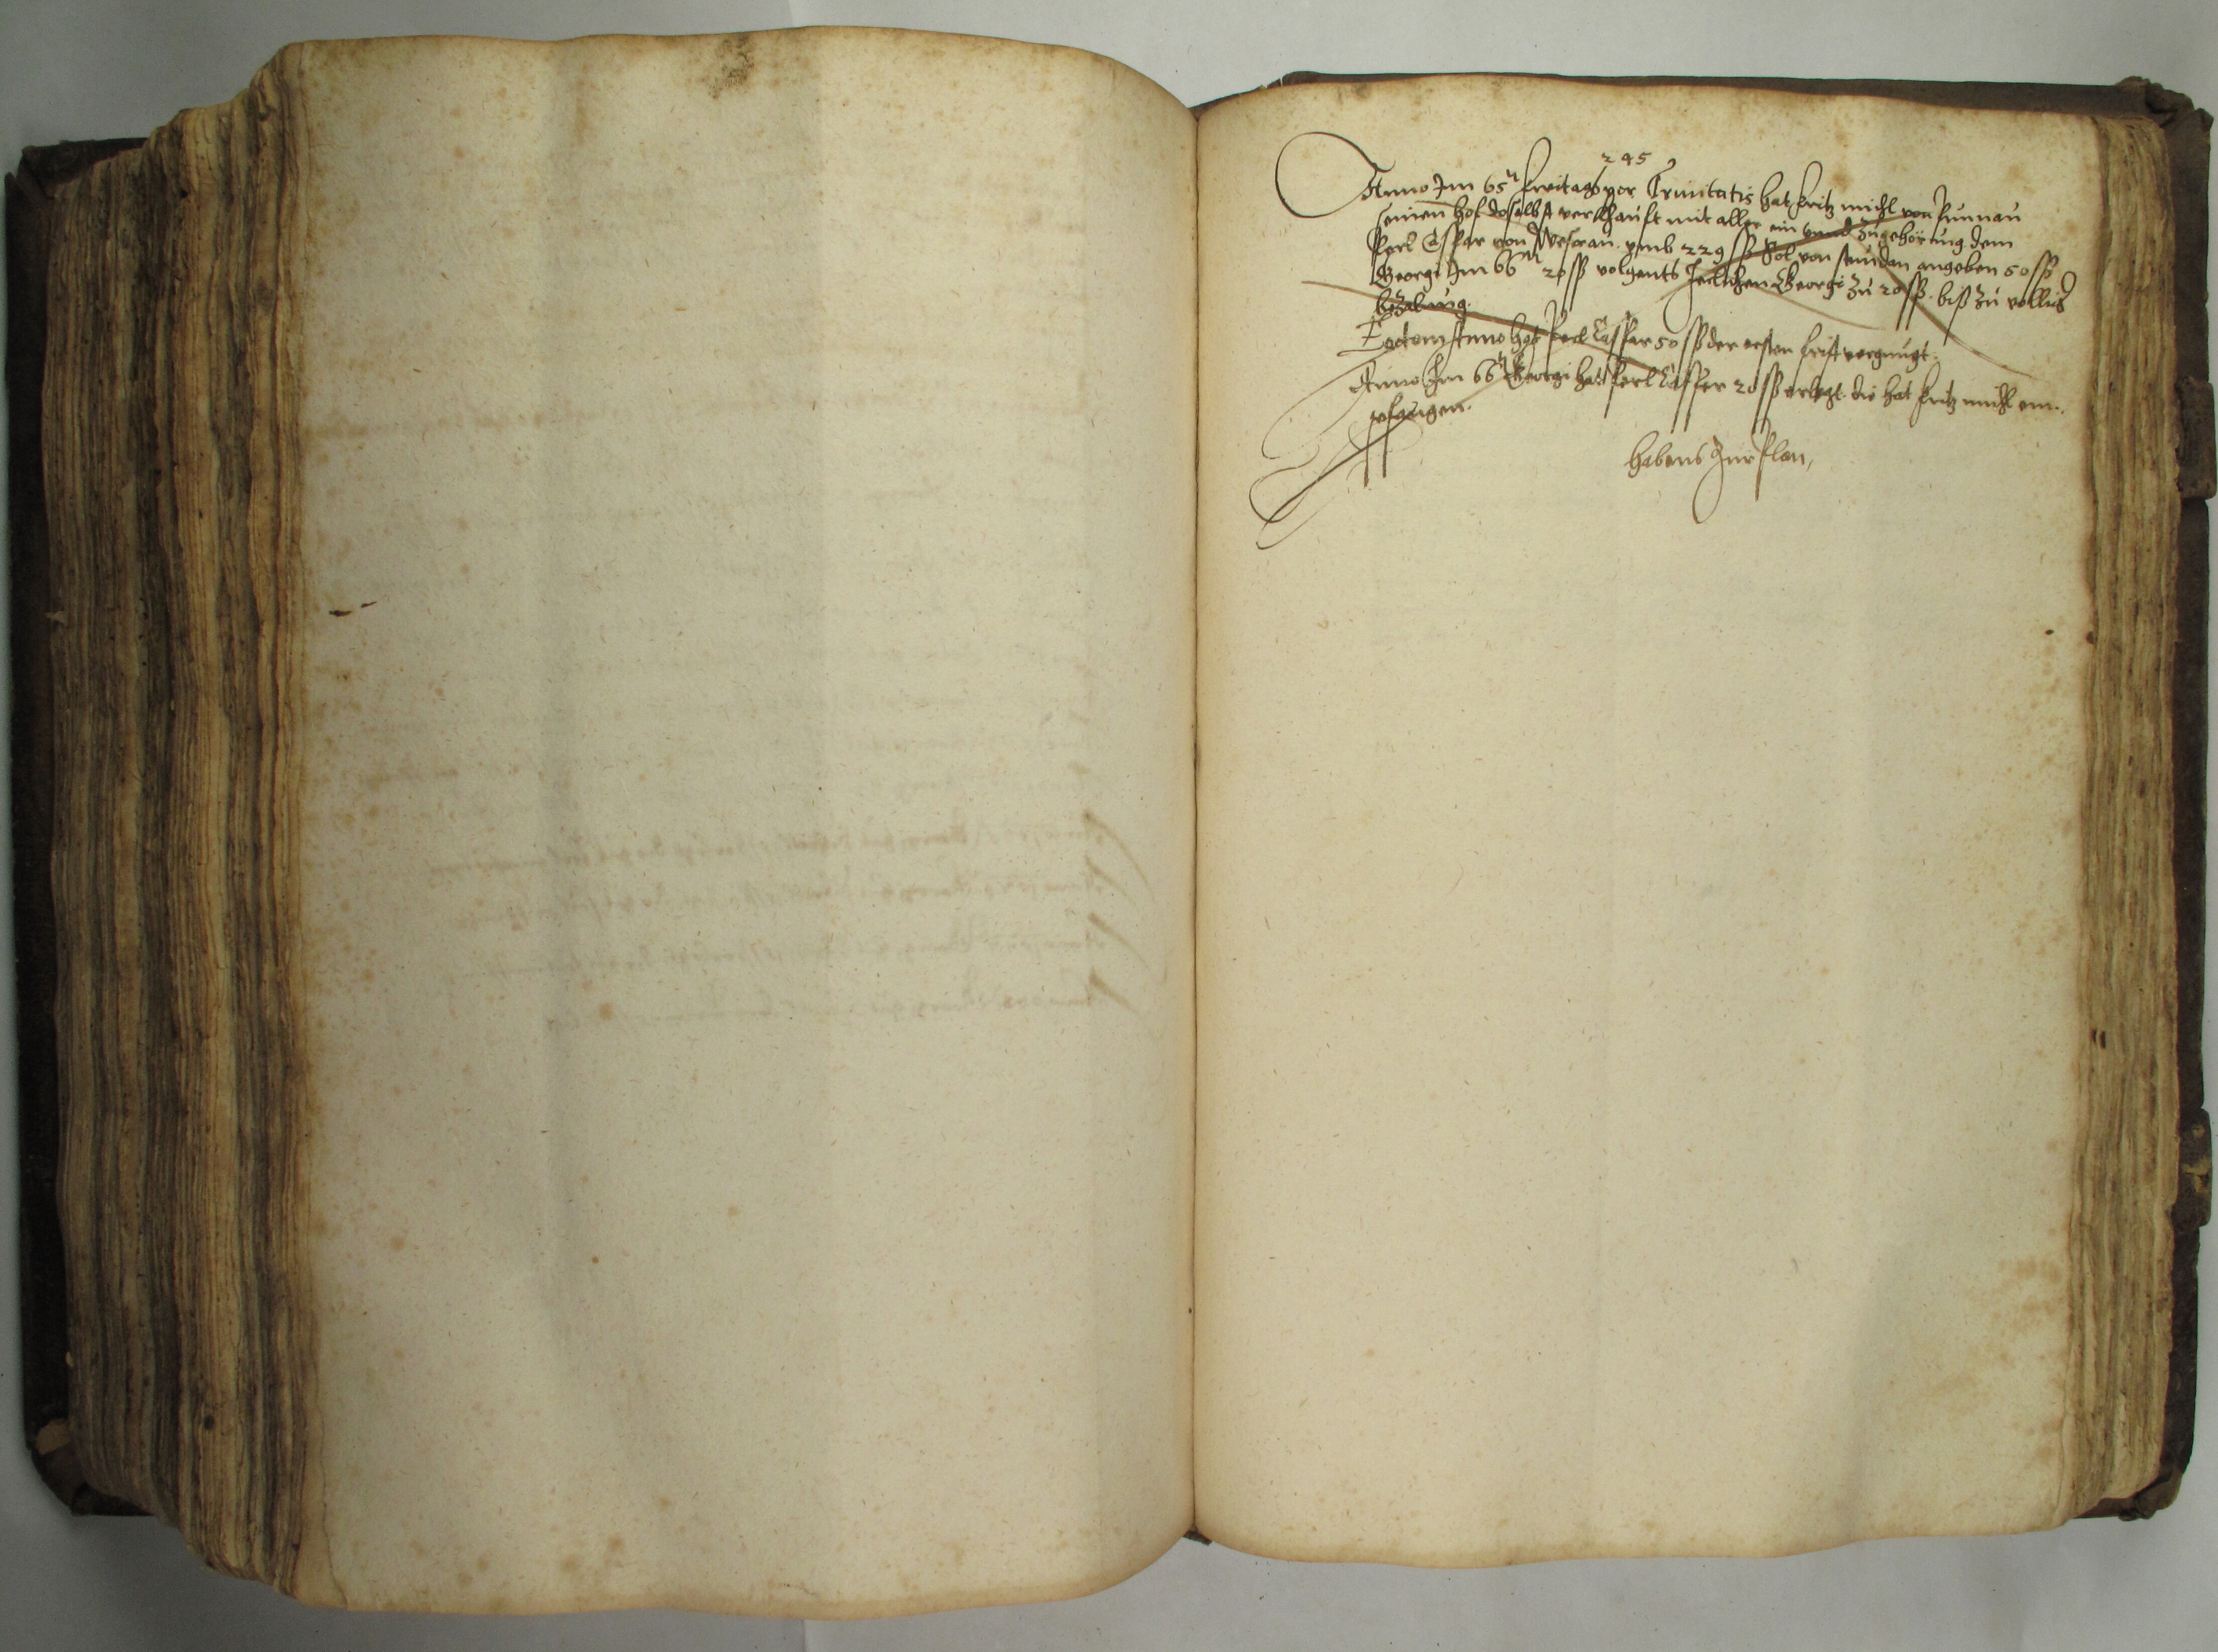 245
Anno Im 65n freitags vor Trinitatis hat fritz michl von
seinen hof doselbst verkhauft mit aller ein vnnd Zugehörung. dem
Caspar von vmb 229 ß Sol von stundan angeben 50 ß
Georgi Im 66n 20 ß volgents Jerlichen Georgi Zu 20 ß. biß Zu volliger
bezalung.
Eodem Anno hat Caspar 50 ß der ersten frist vergnugt.
Anno Im 66n Georgi hat Casper 20 ß erlegt. die hat fritz michl em=
pfangen.
habens Zur Plan,